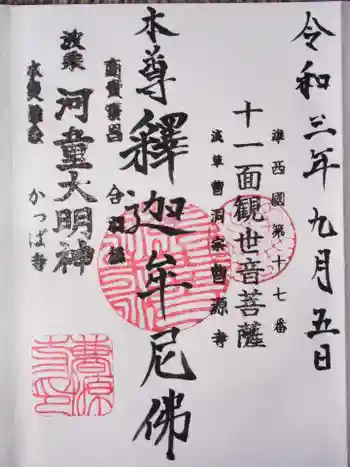 令和三年九月五日
準西國第十七番
十一面観世音菩薩
浅草曹洞宗曹源寺
本尊釋迦牟尼佛
商売繁昌
合羽橋
波乗
河童大明神
かっぱ寺
曹源寺印